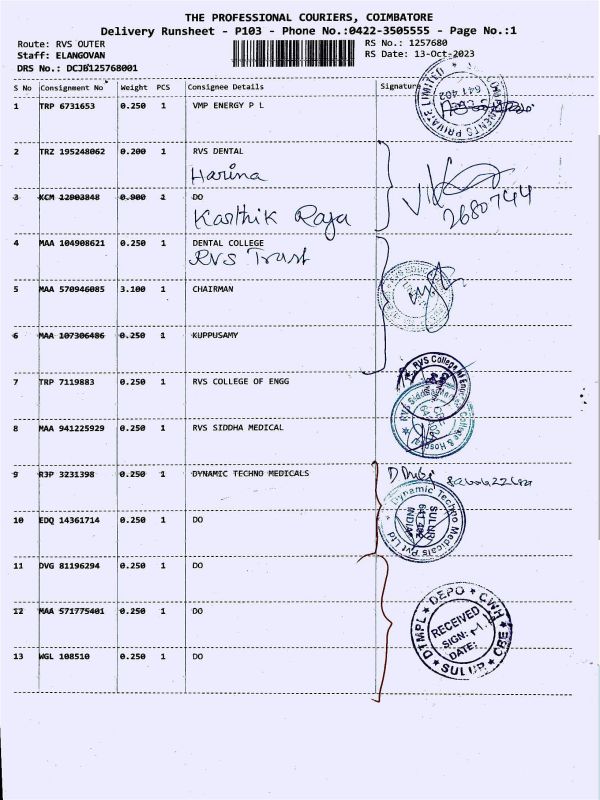 THE PROFESSIONAL COURIERS, COIMBATORE
Delivery Runsheet - P103 - Phone No.:0422-3505555 - Page No.:1
Route: RVS OUTER
RS No.: 1257680
Staff: ELANGOVAN
RS Date: 13-Oct-2023
DRS No.: DCJB125768001
S No Consignment No Weight PCS Consignee Details Signature
1 TRP 6731653 0.250 1 VMP ENERGY P L
PRIVATE LIMITED
641 402
2 TRZ 195248062 0.200 1 RVS DENTAL
Harina
3 KCM 12903848 0.900 1 DO
Karthik Raja
2680744
4 MAA 104908621 0.250 1 DENTAL COLLEGE
RVS Trust
5 MAA 570946085 3.100 1 CHAIRMAN
6 MAA 107306486 0.250 1 KUPPUSAMY
7 TRP 7119883 0.250 1 RVS COLLEGE OF ENGG
RVS College of
8 MAA 941225929 0.250 1 RVS SIDDHA MEDICAL
RVS Siddha College & Hospital
9 RJP 3231398 0.250 1 DYNAMIC TECHNO MEDICALS
10 EDQ 14361714 0.250 1 DO
Dynamic Techno Medicals Pvt Ltd
SULUR
641 402
INDIA
11 DVG 81196294 0.250 1 DO
12 MAA 571775401 0.250 1 DO
DTMPL ★ DEPO ★ CWH ★ CBE ★ SULUR ★
RECEIVED
SIGN:
DATE:
13 WGL 108510 0.250 1 DO